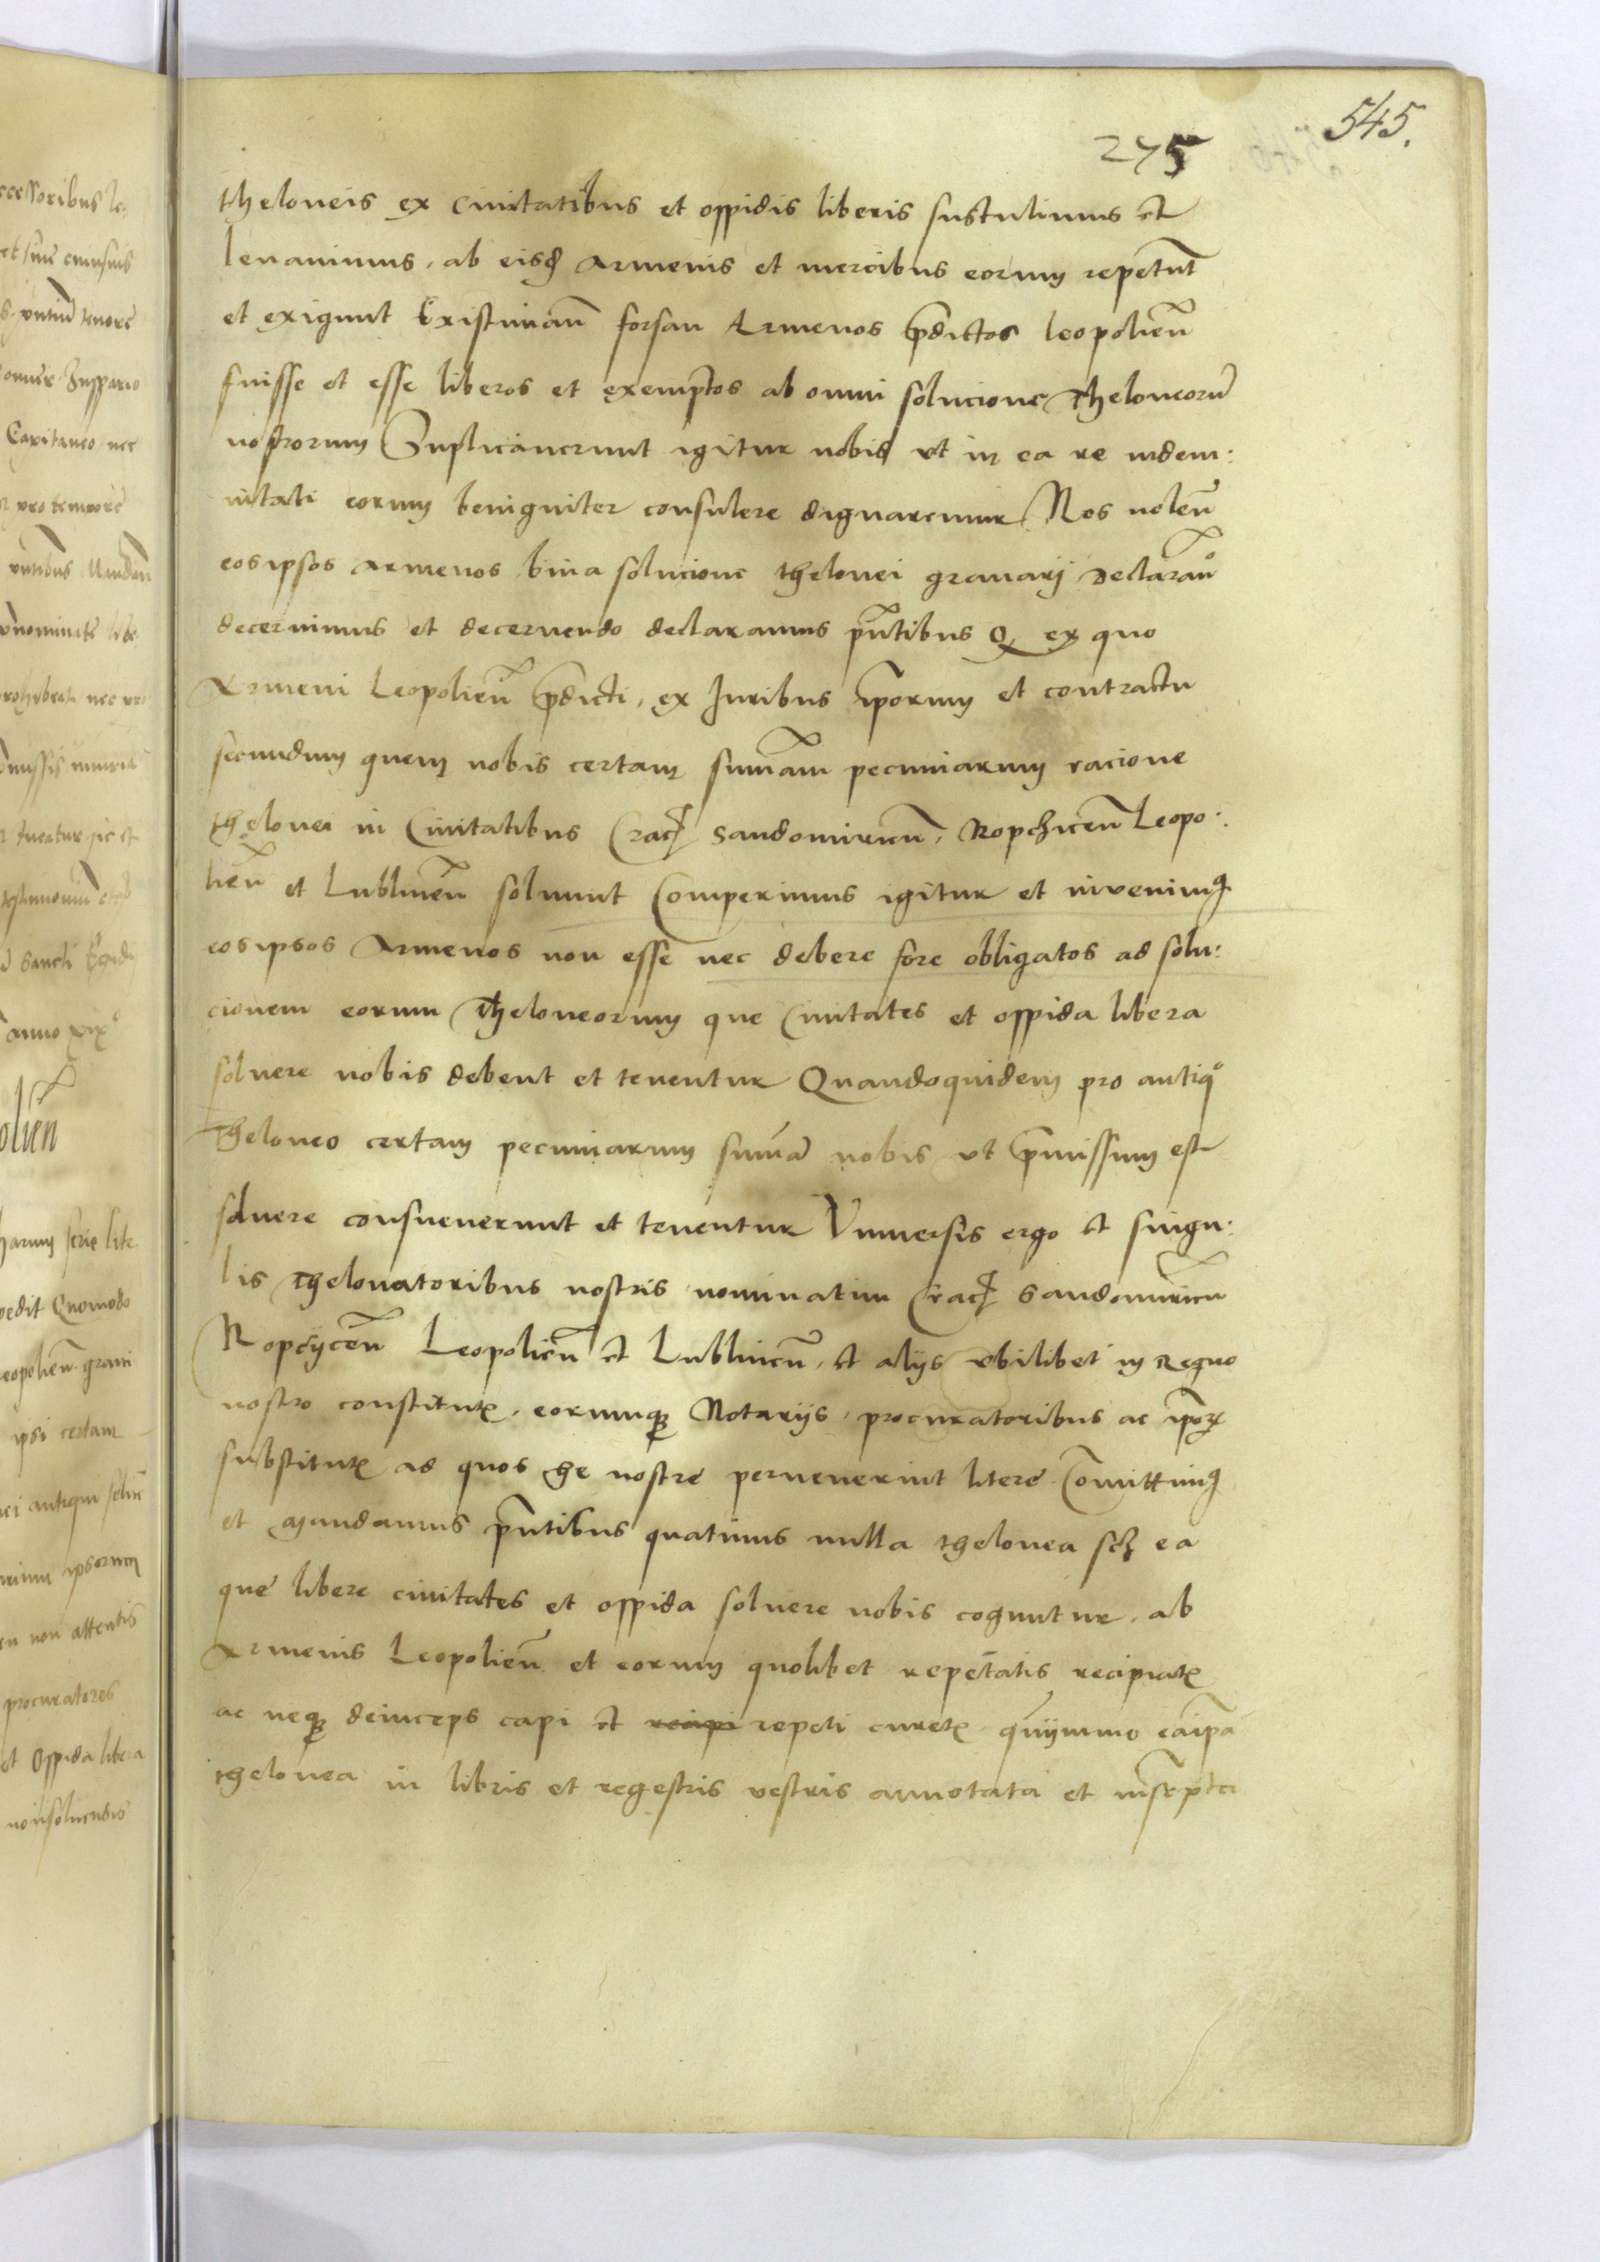 545.
275
theloneis ex Civitatibus et oppidis liberis sustulimus et
levavimus, ab eisd Armenis et mercibus eorum repetut
et exigunt Existiman forsan Armenos pdictos leopolien
fuisse et esse liberos et exemptos ab omni solucione Theloneoru
nostrorum Suplicaverunt igitur nobis ut in ea re indem:
nitati eorum benigniter consulere dignaremur Nos nolen
eos ipsos Armenos bina solucione thelonei gravarj declarano
decernimus et decernendo declaramus pntibus Q ex quo
Armeni Leopolien pdicti, ex Juribus iporum et contractu
secundum quem nobis certam sumam pecuniarum racione
thelonei in Civitatibus Crac Sandomirien, Ropchicen Leopo:
lien et Lublinen solvunt Comperimus igitur et invenimq
eos ipsos Armenos non esse nec debere fore obligatos ad solu:
cionem eorum Theloneorum que Civitates et oppida libera
solvere nobis debent et tenentur Quandoquidem pro antiqo
Theloneo certam pecuniarum suma nobis ut pmissum est
solvere consueverunt et tenentur Universis ergo et singu:
lis Thelonatoribus nostris nominatim Crac Sandomirien
Ropczycen Leopolien et Lublinen, et alijs ubilibet in Regno
nostro constitut, eorumq Notarijs, procuratoribus ac ipor
substitut ad quos he nostre pervenerint litere Comittimq
et Mandamus pntibus quatinus nulla thelonea scz ea
que libere civitates et oppida solvere nobis coguntur, ab
Armenis Leopolien et eorum quolibet repetatis recipiat
ac neq deinceps capi et recipi repeti curet quijmmo eaipa
thelonea in libris et regestris vestris annotata et inscpta